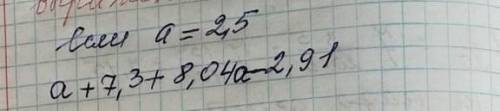 Если a = 2,5
a + 7,3 + 8,04a - 2,91